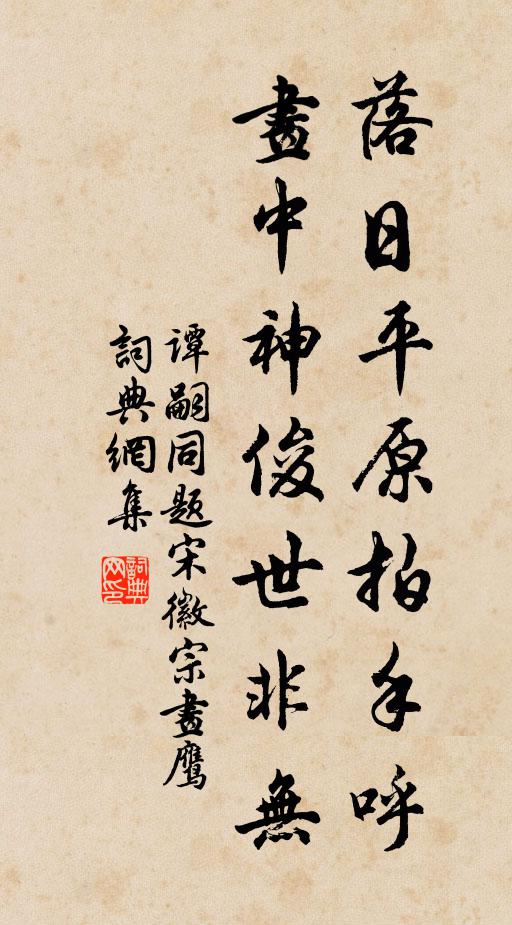 落日平原拍手呼
畫中神俊世非無
谭嗣同题宋徽宗畫鹰
詞典網集
詞典网印